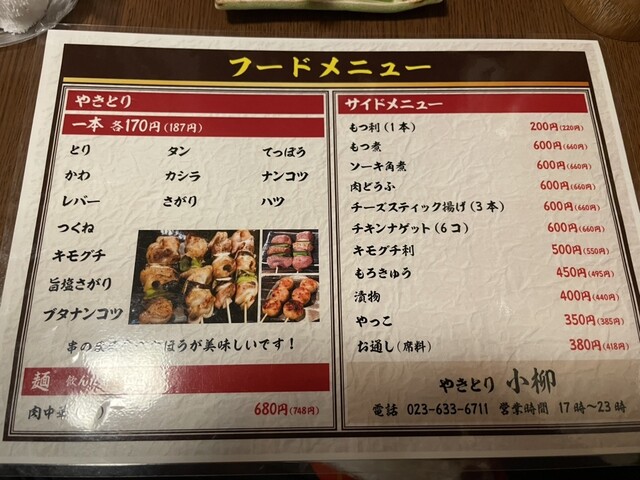 フードメニュー
やきとり
一本 各170円(187円)
とり タン てっぽう
かわ カシラ ナンコツ
レバー さがり ハツ
つくね
キモグチ
旨塩さがり
ブタナンコツ
串の ほうが美味しいです!
麺 飲んだ
肉中華 680円(748円)
サイドメニュー
もつ刺(1本) 200円(220円)
もつ煮 600円(660円)
ソーキ角煮 600円(660円)
肉どうふ 600円(660円)
チーズスティック揚げ(3本) 600円(660円)
チキンナゲット(6コ) 600円(660円)
キモグチ刺 500円(550円)
もろきゅう 450円(495円)
漬物 400円(440円)
やっこ 350円(385円)
お通し(席料) 380円(418円)
やきとり 小柳
電話 023-633-6711 営業時間 17時〜23時